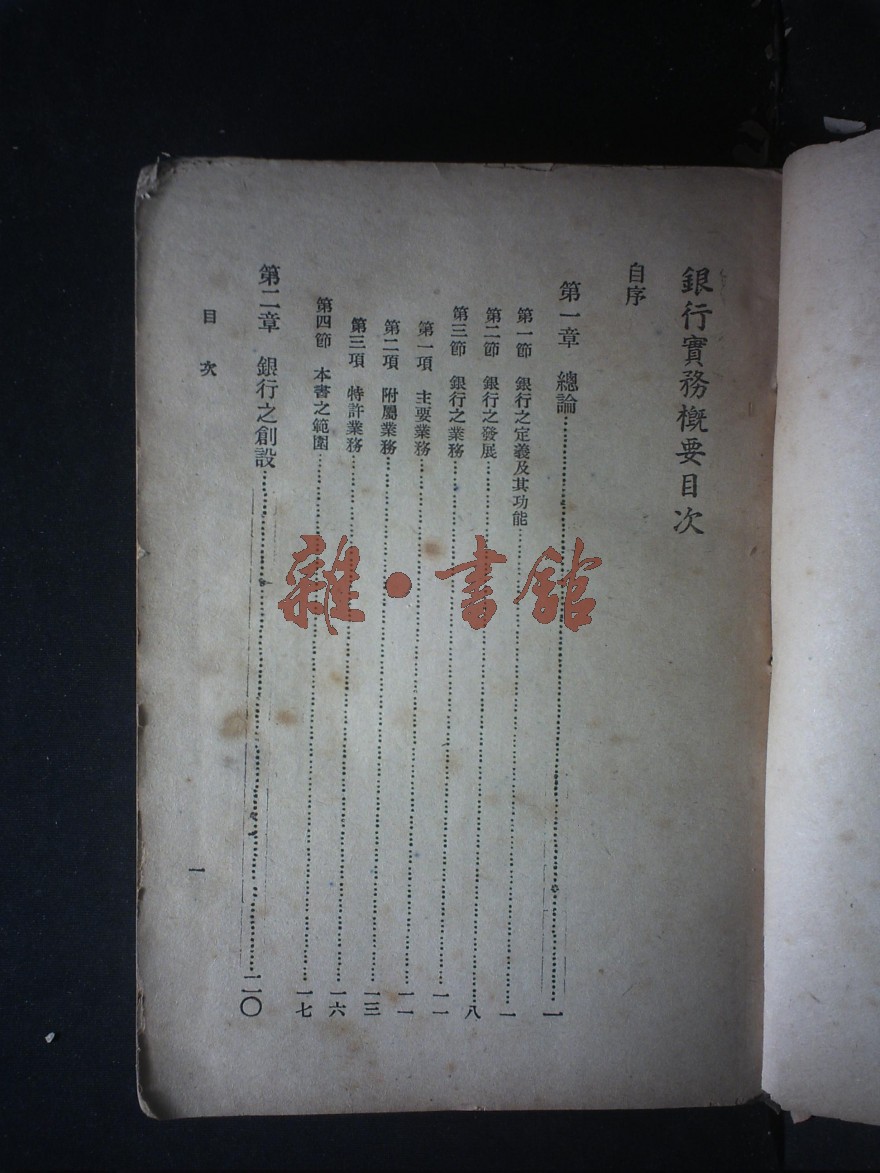 銀行實務槪要目次
自序
第一章 總論……一
第一節 銀行之定義及其功能……一
第二節 銀行之發展……八
第三節 銀行之業務……一一
第一項 主要業務……一一
第二項 附屬業務……一三
第三項 特許業務……一六
第四節 本書之範圍……一七
第二章 銀行之創設……二〇
目次
一
雜·書館